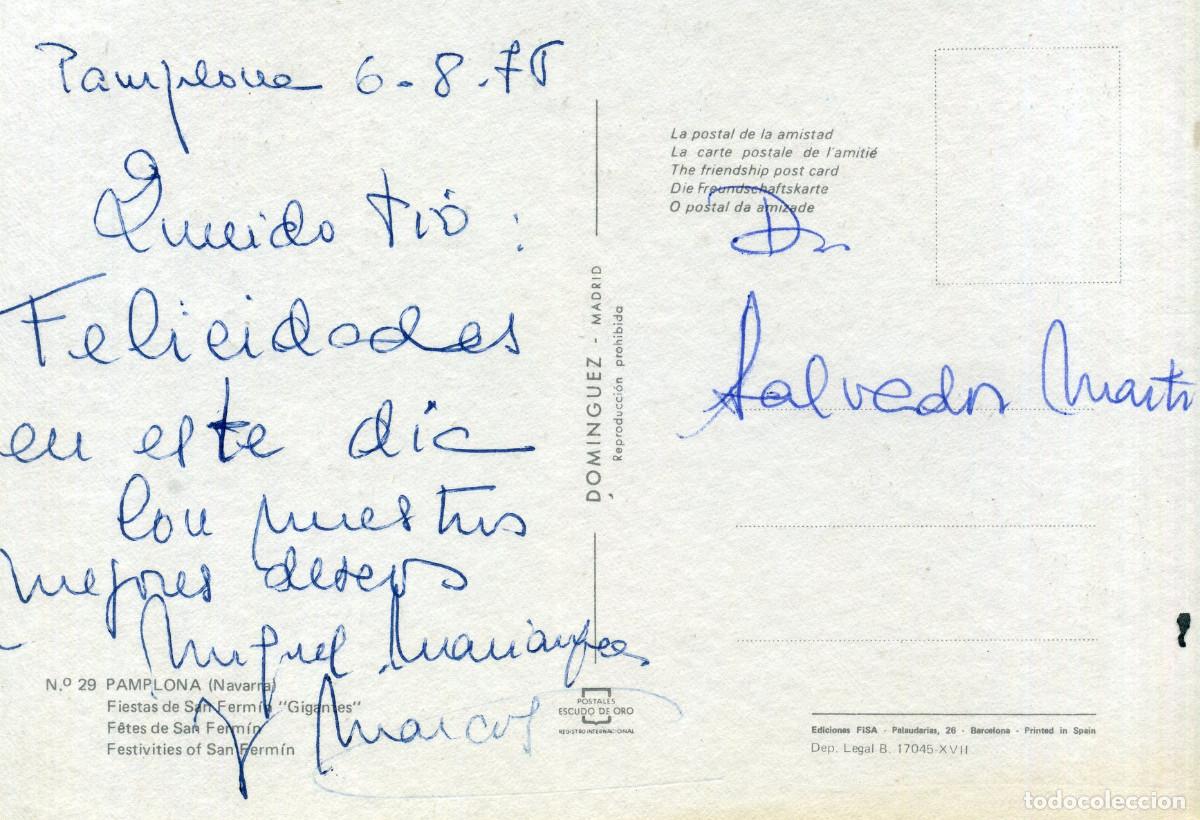 Pamplona 6-8-75
Querido tio:
Felicidades
en este dia
Con nuestros
mejores deseos
Miguel Mariangeles
y Marcos
Nº 29 PAMPLONA (Navarra)
Fiestas de San Fermín "Gigantes"
Fêtes de San Fermín
Festivities of San Fermín
DOMINGUEZ - MADRID
Reproducción prohibida
POSTALES
ESCUDO DE ORO
REGISTRO INTERNACIONAL
La postal de la amistad
La carte postale de l'amitié
The friendship post card
Die Freundschaftskarte
O postal da amizade
Dr
Salvador Marti
Ediciones FISA - Palaudarias, 26 - Barcelona - Printed in Spain
Dep. Legal B. 17045-XVII
todocoleccion